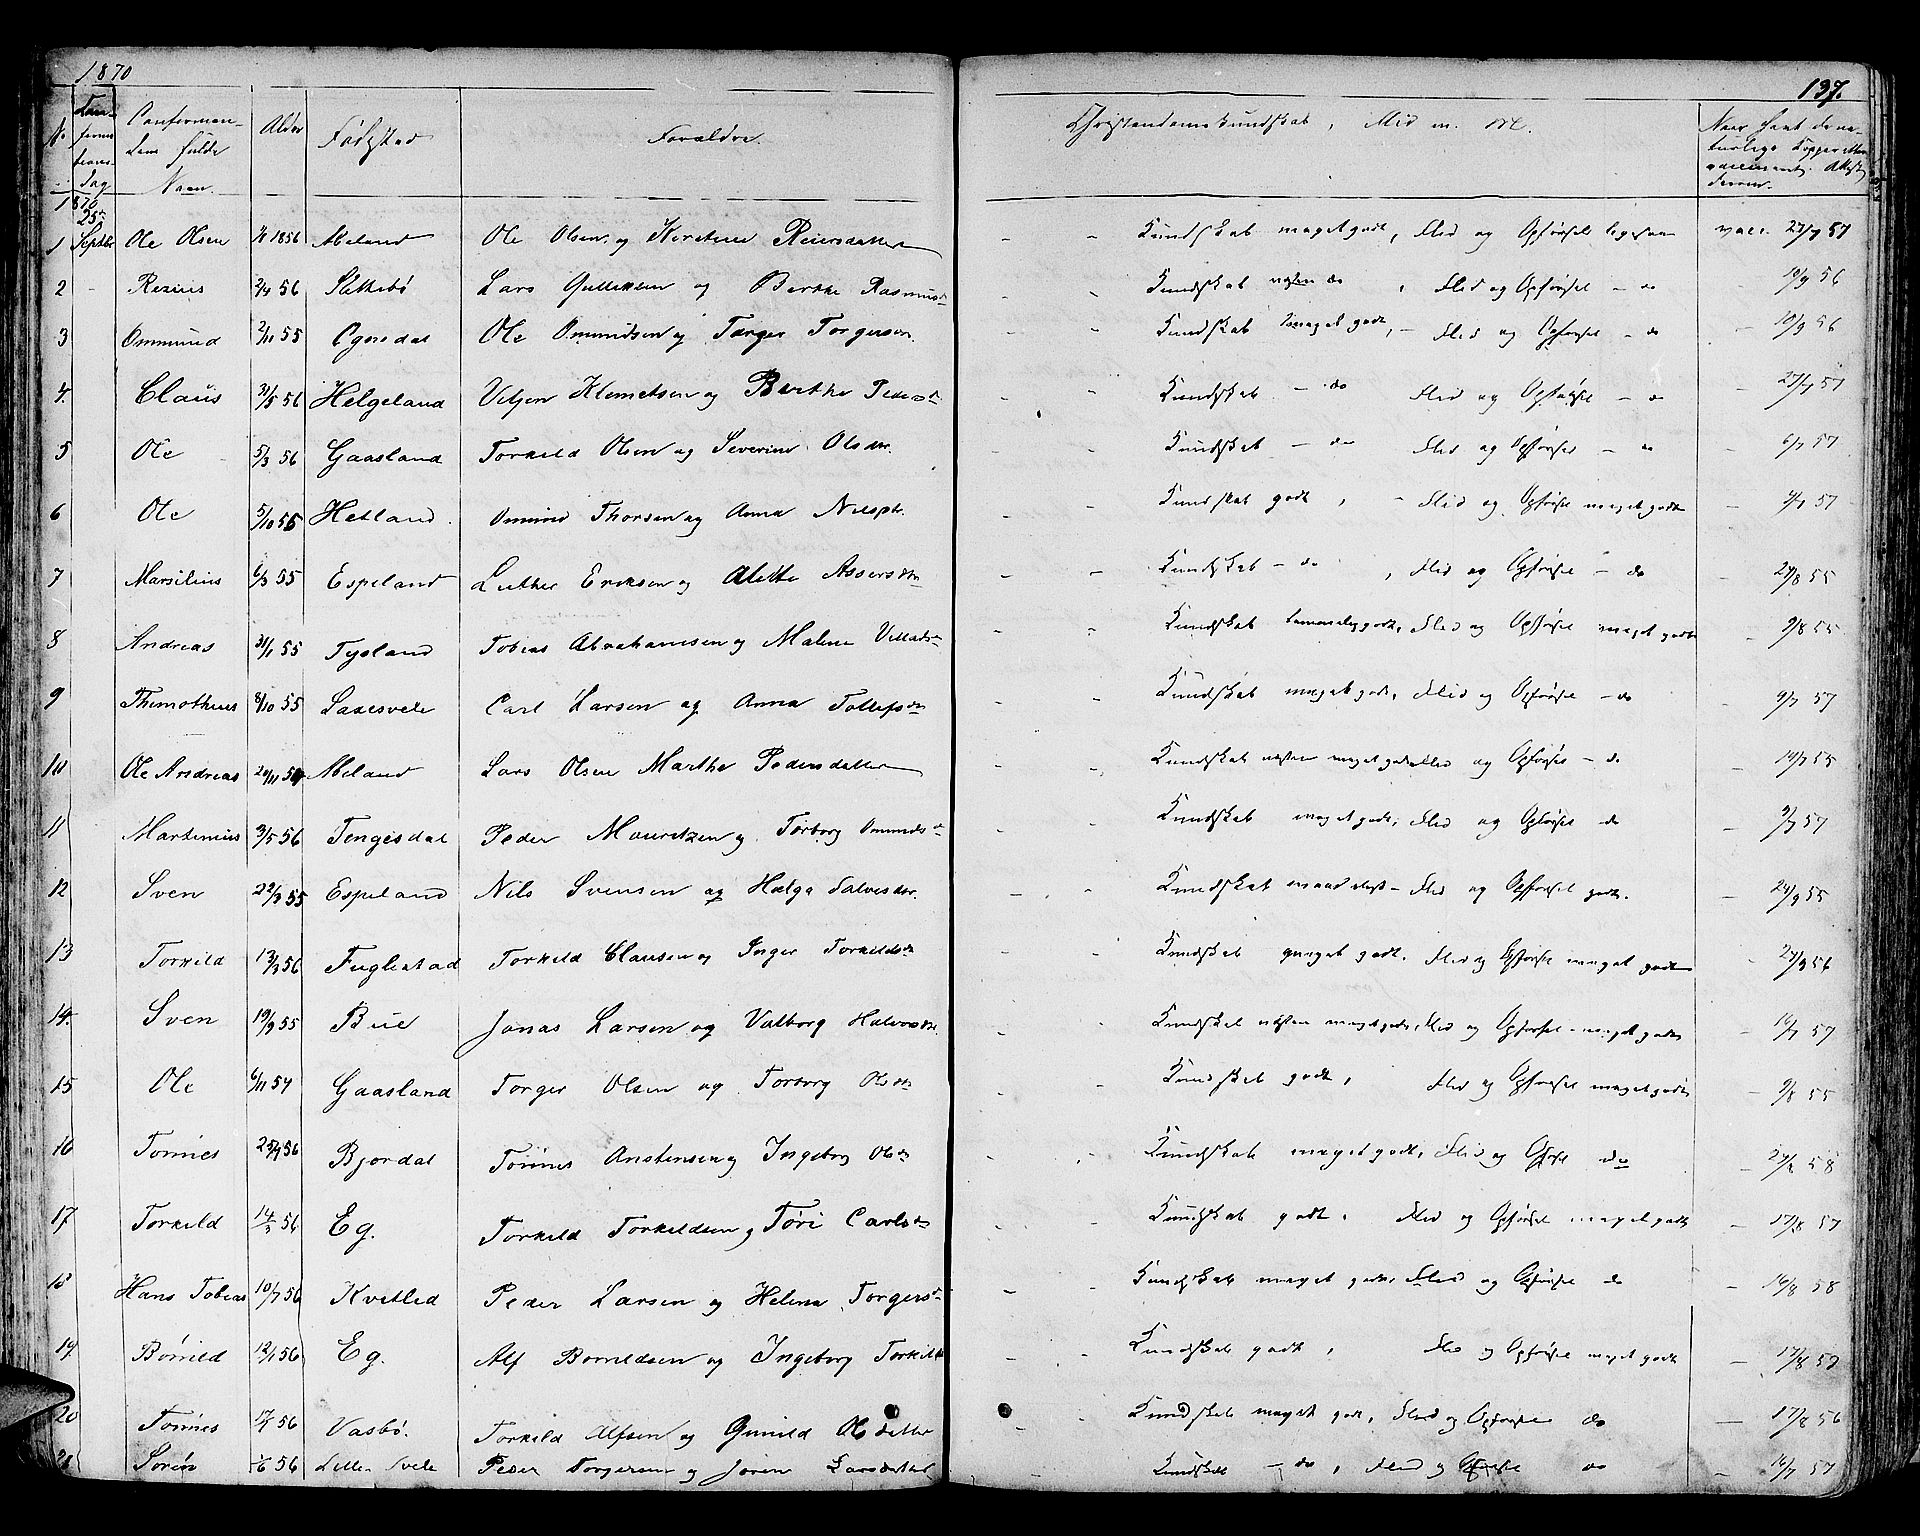 1870
137.
No. Confirmations-dag Confirmandens fulde Navn. Alder Fødested Forældre. Christendomskundskab, Flid m. M. Naar havt de naturlige Kopper eller vaccineret. Attest derom.
1870
25de
1 Septbr Ole Olsen 1856 Aleland Ole Olsen og Kirstine Reiersdatter - - Kundskab meget godt, Flid og Opførsel ligesaa vacc. 57
2 - Rezius 2/4 56 Slettebø Lars Gulliksen og Berthe Rasmusd. - - Kundskab næsten do, Flid og Opførsel - do 10/9 56
3 Ommund 2/11 55 Ognedal Ole Ommundsen og Targer Torgersen. - - Kundskab meget godt, - Flid og Opførsel - do - 10/9 56
4. Claus 31/5 56 Helgeland Klemetsen og Berthe Peders d. - - Kundskab - do Flid og Opførsel - do - 57
5 Ole 5/3 56 Gaasland Torkild Olsen og Severine Olsdtr. - - Kundskab - do Flid og Opførsel - do 6/7 57
6 Ole 5/10 55 Hetland. Ommund Thorsen og Anna - - Kundskab godt, - Flid og Opførsel meget godt - 57
7 Marsilius 6/3 55 Espeland Luther Eriksen og Alette Assersdtr - - Kundskab - do, Flid og Opførsel - do - 55
8 Andreas 31/1 55 Tysland Tobias Abrahamsen og Malene Villadsd. - - Kundskab temmelig godt, Flid og Opførsel meget godt - 9/8 55
9 Themotheus 8/10 55 Laxesvele Carl Larsen og Anna Tollefsdtr - - Kundskab meget godt, Flid og Opførsel - do - 9/7 57
10 Ole Andreas 20/11 54 Aleland Lars Olsen Marthe Pedersdatter - - Kundskab næsten meget godt Flid og Opførsel - do - 14/7 55
11 Martinius 3/5 56 Tengesdal Peder Mouritzen og Torborg Ommundsd. Kundskab meget godt, Flid og Opførsel do - 57
12 Sven 22/3 55 Espeland Nils Svensen og Helga Salvesdtr. - - Kundskab maadeligt - Flid og Opførsel godt. - 24/9 55
13 Torkild 13/3 56 Fuglestad Torkild Clausen og Inger Torkildsd. - - Kundskab meget godt. Flid og Opførsel meget godt 56
14. Sven 19/9 55 Bue Jonas Larsen og Valborg Halvorsdtr. - - Kundskab næsten meget godt, Flid og Opførsel - meget godt - 16/7 57
15 Ole 6/11 54 Gaasland Torger Olsen og Torborg Olsdtr - - Kundskab godt, Flid og Opførsel meget godt - 9/8 55
16 Tønnes 56 Bjordal Tønnes Anstensen og Ingeborg Olsd. - Kundskab meget godt, Flid og Opførsel do - 58
17 Torkild 14/3 56 Eg. Torkild Torkildsen og Tøri Carlsd. - - Kundskab godt. Flid og Opførsel meget godt - 17/8 57
18 Hans Tobias 10/7 56 Kvitlid Peder Larsen og Helena Torgersd. - - Kundskab meget godt, Flid og Opførsel do - 16/8 58
19 Børrild 12/1 56 Eg. Alf Børrildsen og Ingeborg Torkilsd - - Kundskab godt, Flid og Opførsel meget godt - 17/8 57
20 Tønnes 56 Vasbø. Torkild Alfsen og Gunild Olsdatter Kundskab meget godt, Flid og Opførsel do - 17/8 56
21 Søren 56 Lille Svele Peder Torgersen og Joren Larsdatter Kundskab - do, Flid og Opførsel do - 16/7 57